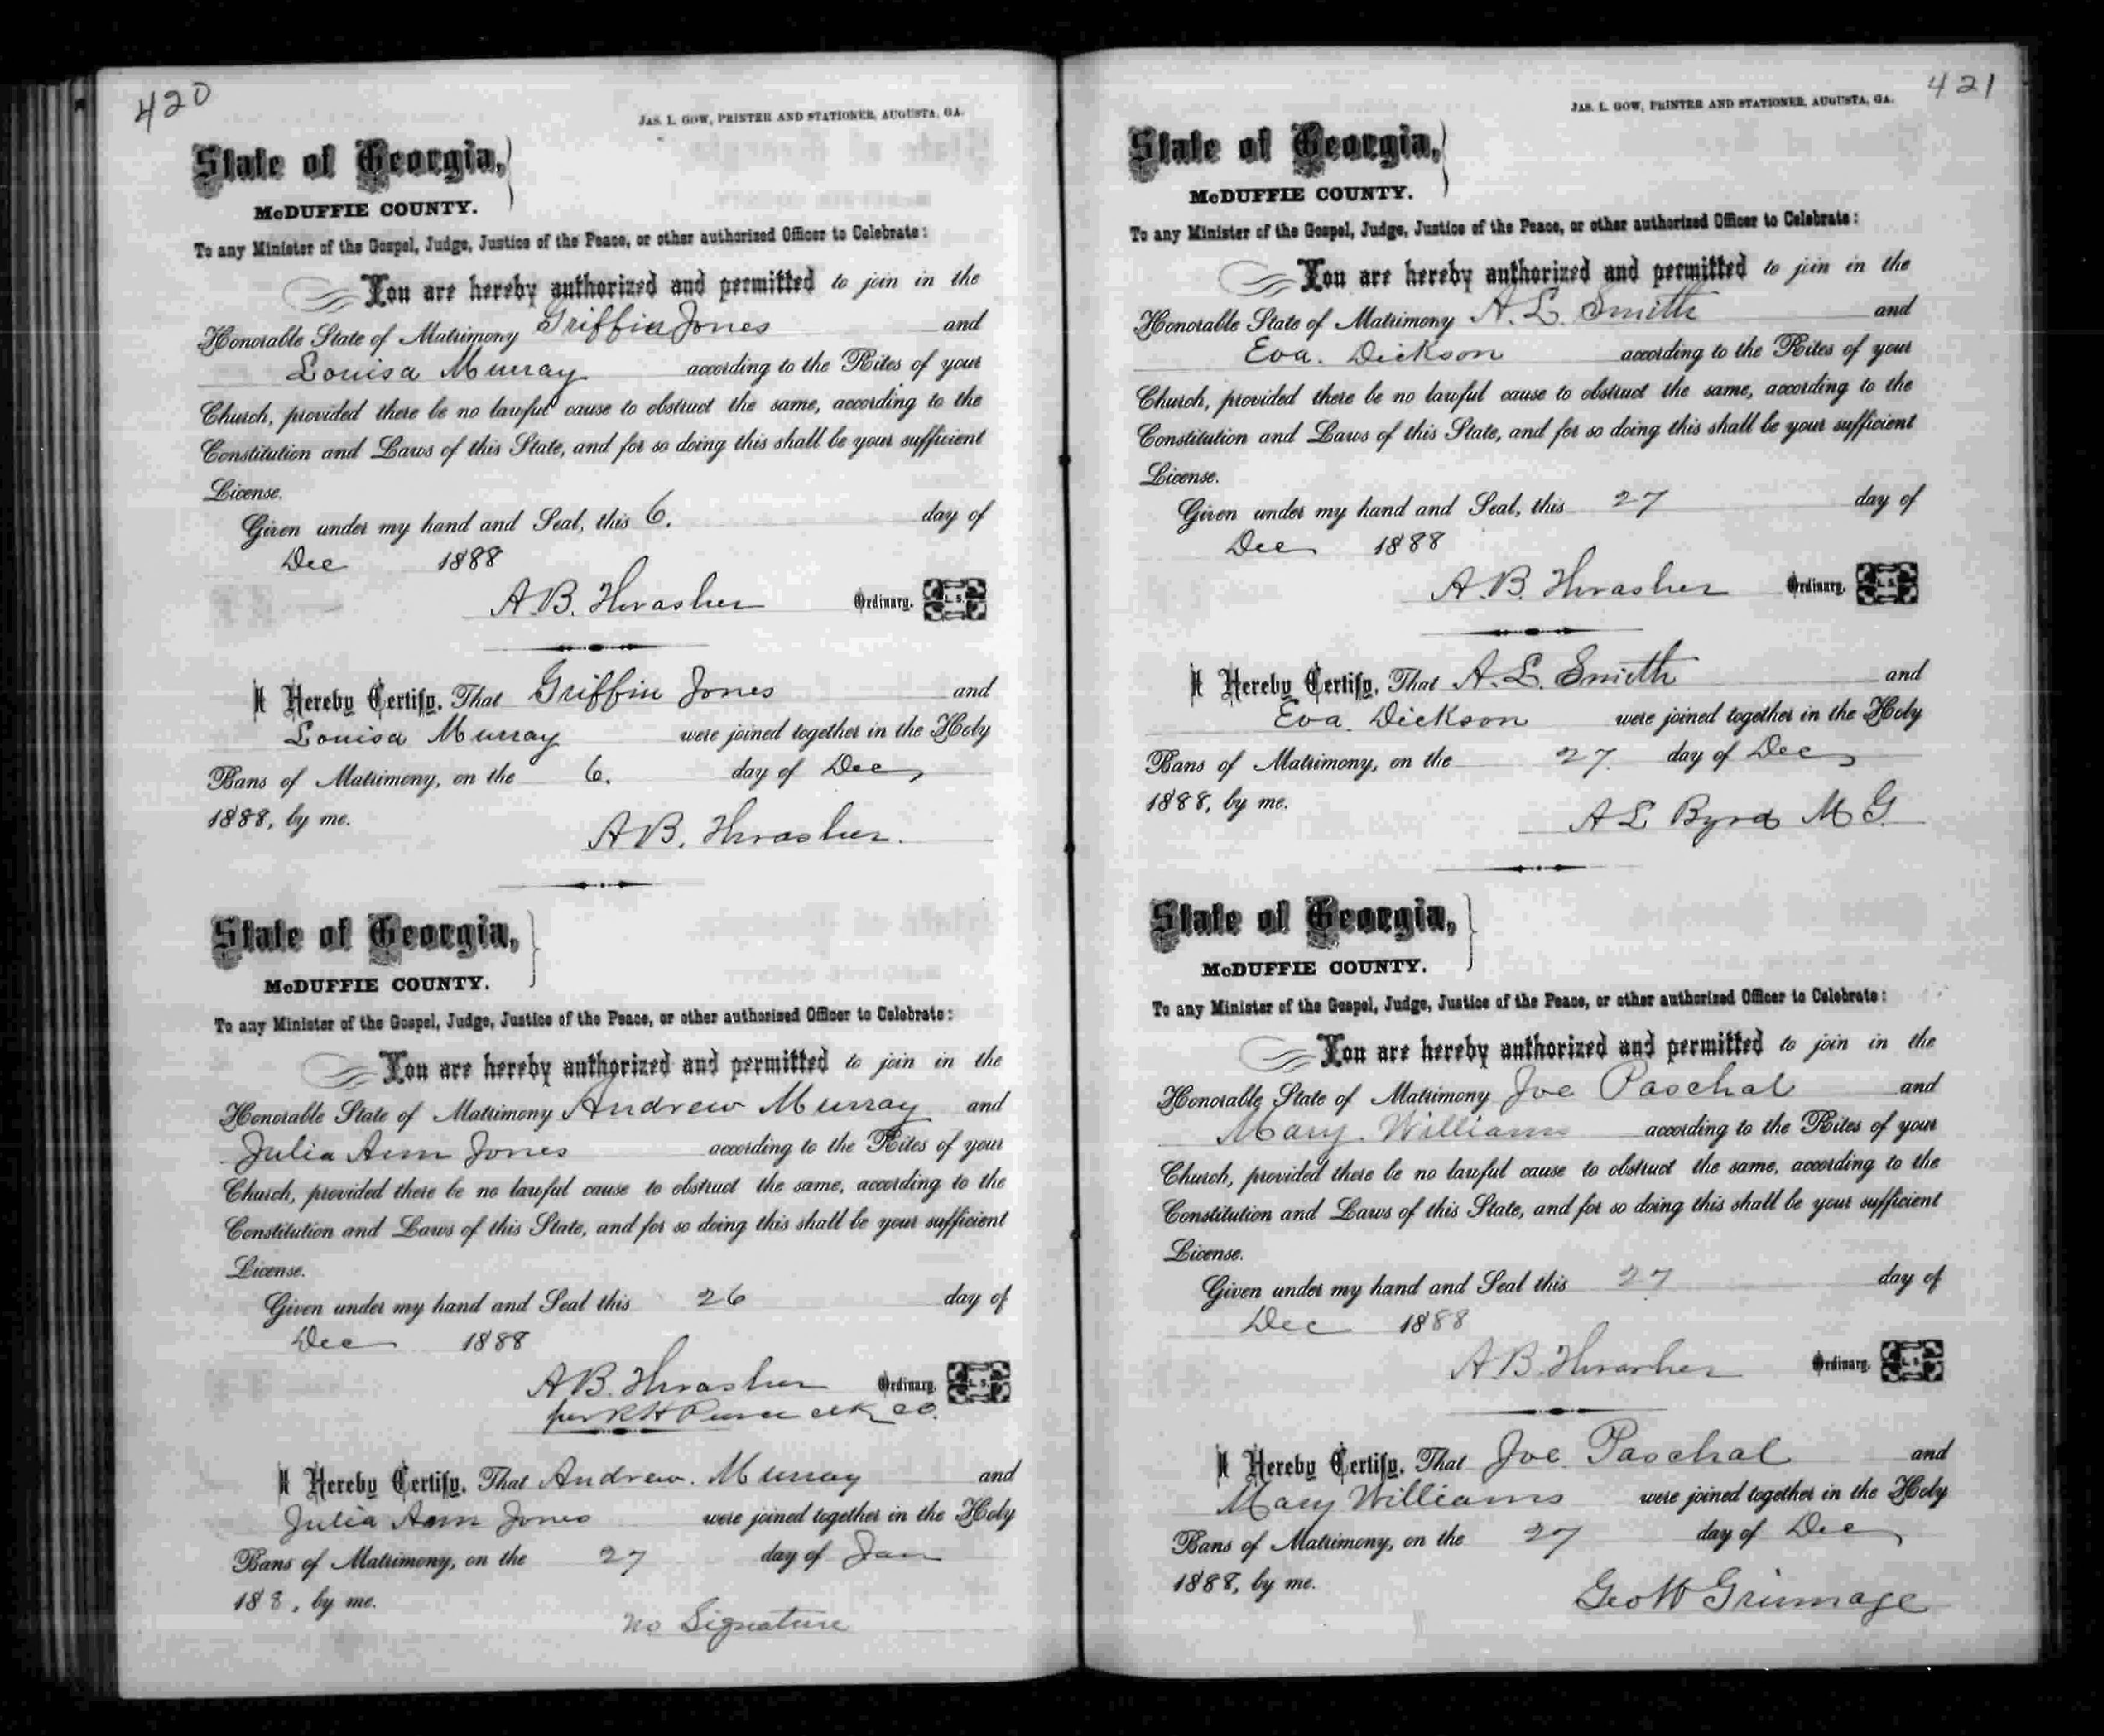 420
JAS. L. GOW, PRINTER AND STATIONER, AUGUSTA, GA.
State of Georgia,
McDUFFIE COUNTY.
To any Minister of the Gospel, Judge, Justice of the Peace, or other authorized Officer to Celebrate:
You are hereby authorized and permitted to join in the
Honorable State of Matrimony Griffin Jones and
Louisa Murray according to the Rites of your
Church, provided there be no lawful cause to obstruct the same, according to the
Constitution and Laws of this State, and for so doing this shall be your sufficient
License.
Given under my hand and Seal, this 6. day of
Dec 1888
A.B. Thrasher Ordinary. L. S.
I Hereby Certify, That Griffin Jones and
Louisa Murray were joined together in the Holy
Bans of Matrimony, on the 6. day of Dec
1888, by me.
A B. Thrasher.
State of Georgia,
McDUFFIE COUNTY.
To any Minister of the Gospel, Judge, Justice of the Peace, or other authorized Officer to Celebrate:
You are hereby authorized and permitted to join in the
Honorable State of Matrimony Andrew Murray and
Julia Ann Jones according to the Rites of your
Church, provided there be no lawful cause to obstruct the same, according to the
Constitution and Laws of this State, and for so doing this shall be your sufficient
License.
Given under my hand and Seal this 26 day of
Dec 1888
A B. Thrasher Ordinary. L. S.
per R H
I Hereby Certify, That Andrew. Murray and
Julia Ann Jones were joined together in the Holy
Bans of Matrimony, on the 27 day of Jan
188 , by me.
no Signature
421
JAS. L. GOW, PRINTER AND STATIONER, AUGUSTA, GA.
State of Georgia,
McDUFFIE COUNTY.
To any Minister of the Gospel, Judge, Justice of the Peace, or other authorized Officer to Celebrate:
You are hereby authorized and permitted to join in the
Honorable State of Matrimony A. L. Smith and
Eva. Dickson according to the Rites of your
Church, provided there be no lawful cause to obstruct the same, according to the
Constitution and Laws of this State, and for so doing this shall be your sufficient
License.
Given under my hand and Seal, this 27 day of
Dec 1888
A.B. Thrasher Ordinary. L. S.
I Hereby Certify, That A. L. Smith and
Eva. Dickson were joined together in the Holy
Bans of Matrimony, on the 27. day of Dec
1888, by me.
A L Byrd M G
State of Georgia,
McDUFFIE COUNTY.
To any Minister of the Gospel, Judge, Justice of the Peace, or other authorized Officer to Celebrate:
You are hereby authorized and permitted to join in the
Honorable State of Matrimony Joe Paschal and
Mary Williams according to the Rites of your
Church, provided there be no lawful cause to obstruct the same, according to the
Constitution and Laws of this State, and for so doing this shall be your sufficient
License.
Given under my hand and Seal this 27 day of
Dec 1888
A B. Thrasher Ordinary. L. S.
I Hereby Certify, That Joe Paschal and
Mary Williams were joined together in the Holy
Bans of Matrimony, on the 27 day of Dec
1888, by me.
Geo W Grimmage